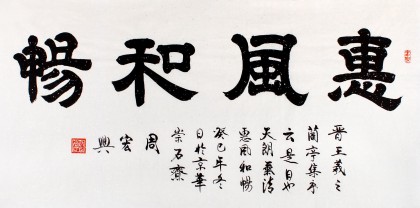 惠風和暢
晋王羲之
蘭亭集序
云是日也
天朗氣清
惠風和暢
癸巳年冬
日於京華
崇石齋
周宏興